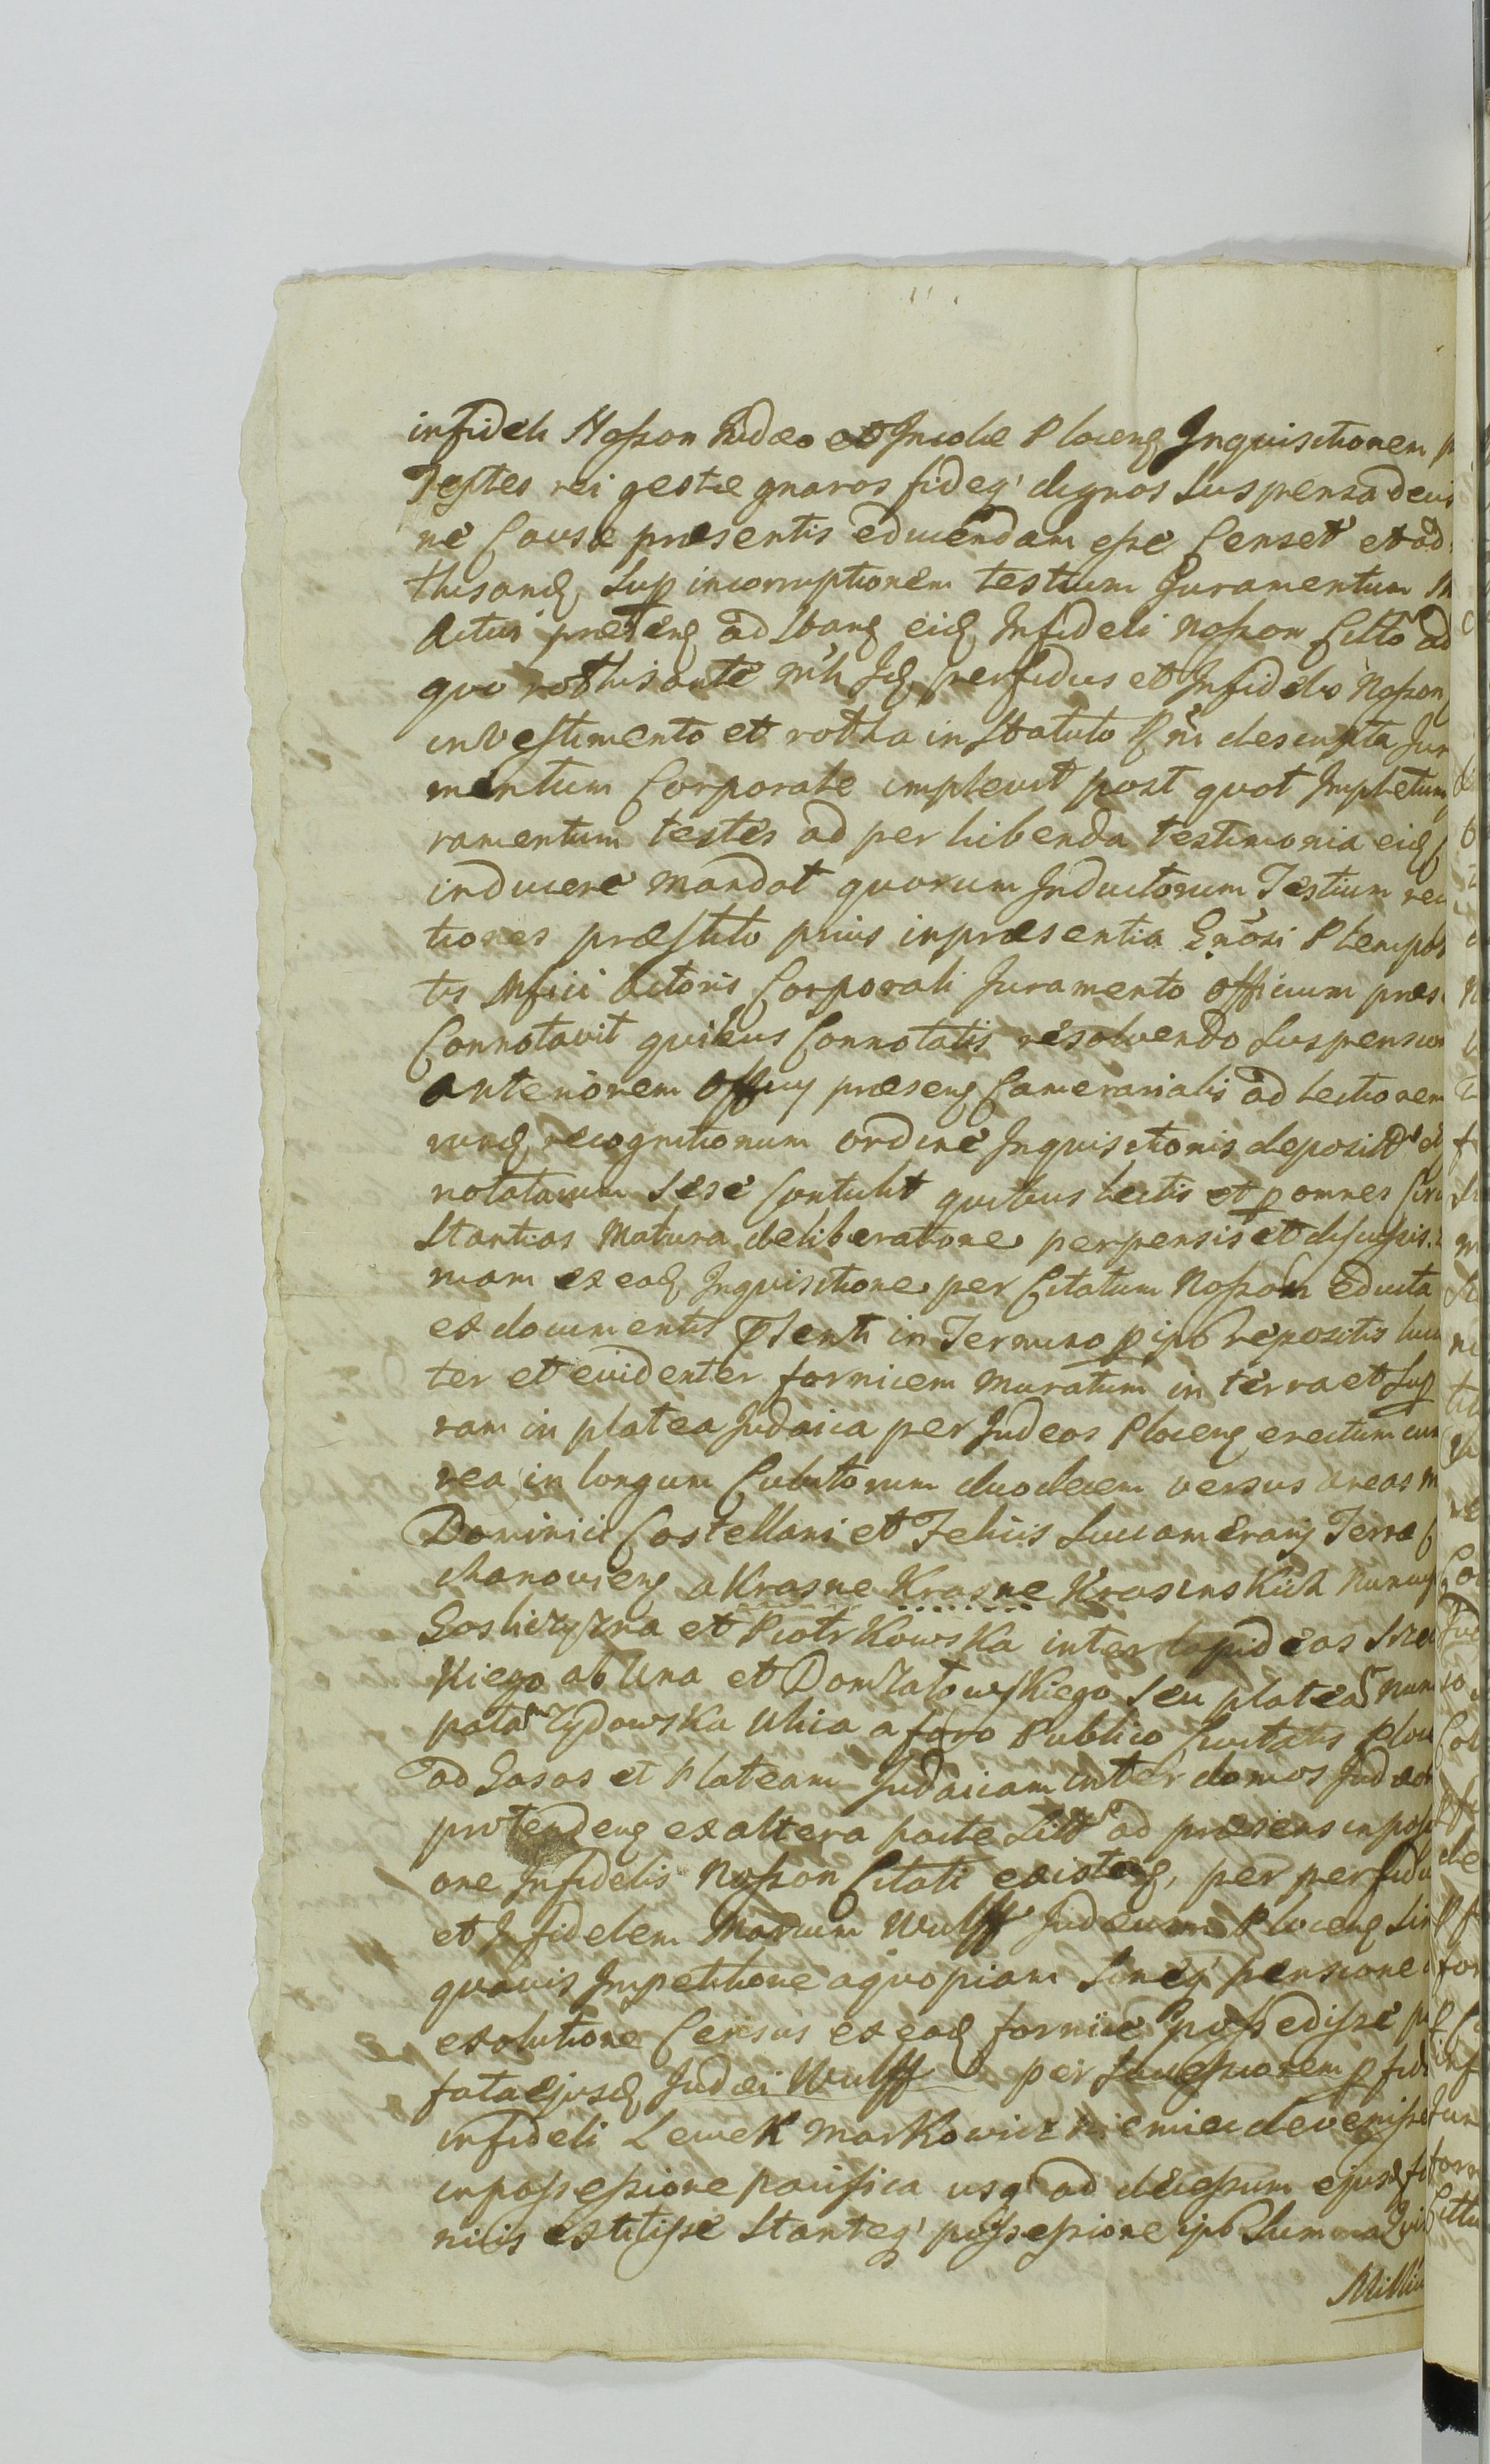 infideli Noszon Judæo et Incolæ Plocen Inquisitionem
Testes rei gestæ gnaros fideq dignos suspensa decis
ne Causæ præsentis educendam esse Censet et ad
thisand sup incorruptionem testium Juramentum
Actui præsen ad stan eid Infideli Noszon
quo rothisante Id perfidus et Infidelis Noszon
in Vestimento et rotha in Statuto Rni descripta Jur
mentum Corporale implevit post quot Impletum
ramentum testes ad perhibenda testimonia eid
inducere mandat quorum Inductorum Testium rec
tiones præstito prius in præsentia Gnosi Plenipot
tis Mfici Actoris Corporali Juramento officium præs
Connotavit quibus Connotatis resolvendo suspension
anteriorem Officy præsen Camerarialis ad lectionem
rund recognitionum ordine Inquisitionis deposit et
notatarum sese Contulit quibus lectis et p omnes Circ
Stantias matura deliberatione perpensis et discussis
niam ex ead Inquisitione per Citatum Noszon Educta
ex documentis in Termino p ip repositis luc
ter et evidenter fornicem muratum in terra et sup
ram in platea Judaica per Judeos Plocen erectum cum
rea in longum Cubitorum duodecem versus areas
Dominici Castellani et Felicis Succamerarij Terræ
chanovien a Krasne Krasne Krasinskich nuncup
Gosliczyzna et Piotrkowska inter lapideas
kiego ab una et Domzalowskiego seu plateam nun
patam Zydowska Ulica a foro Publico Civitatis Ploc
ad Gasas et Plateam Judaicam inter domos Judæor
protenden ex altera parte sitt ad præsens in possessi
one Infidelis Noszon Citati existen, per perfidu
et Infidelem Marcum Wulff Judæum Plocen sin
quavis Impetitione a quopiam sineq pensione
exolutione Census ex ead fornice possedisse p
fata ejusd Judæi Wulff per successionem p fid
infideli Lewek Markowicz Niemiec devenisse
in possessione pacifica usq ad decessum ejusd
nicis extitisse stanteq possessione ip summa
Millia